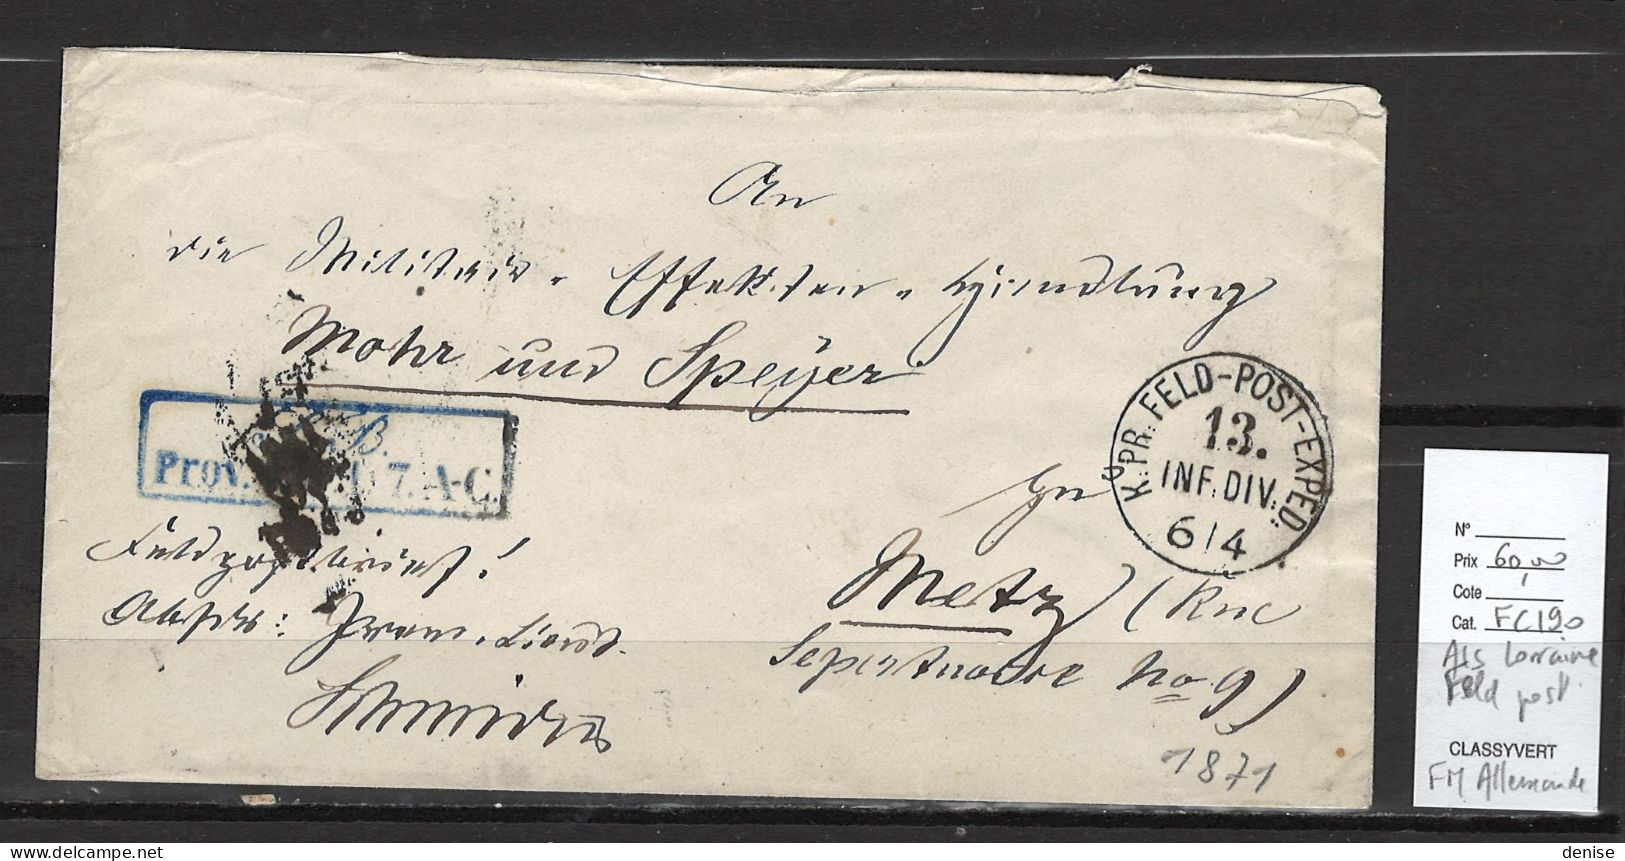 An
die Militair-Effekten-Handlung
Mohr und Speyer
K. PR. FELD-POST-EXPED.
13.
INF. DIV.
6/4
S. B.
Prov. 7. A-C.
zu
Feldpostbrief!
Metz (Rue
Abs: Prem. Lieut.
Serpenoise No 9)
1871
N°
Prix 60,00
Cote
Cat. FC190
Als Lorraine
Feld post
CLASSYVERT
FM Allemande
delcampe.net
denise